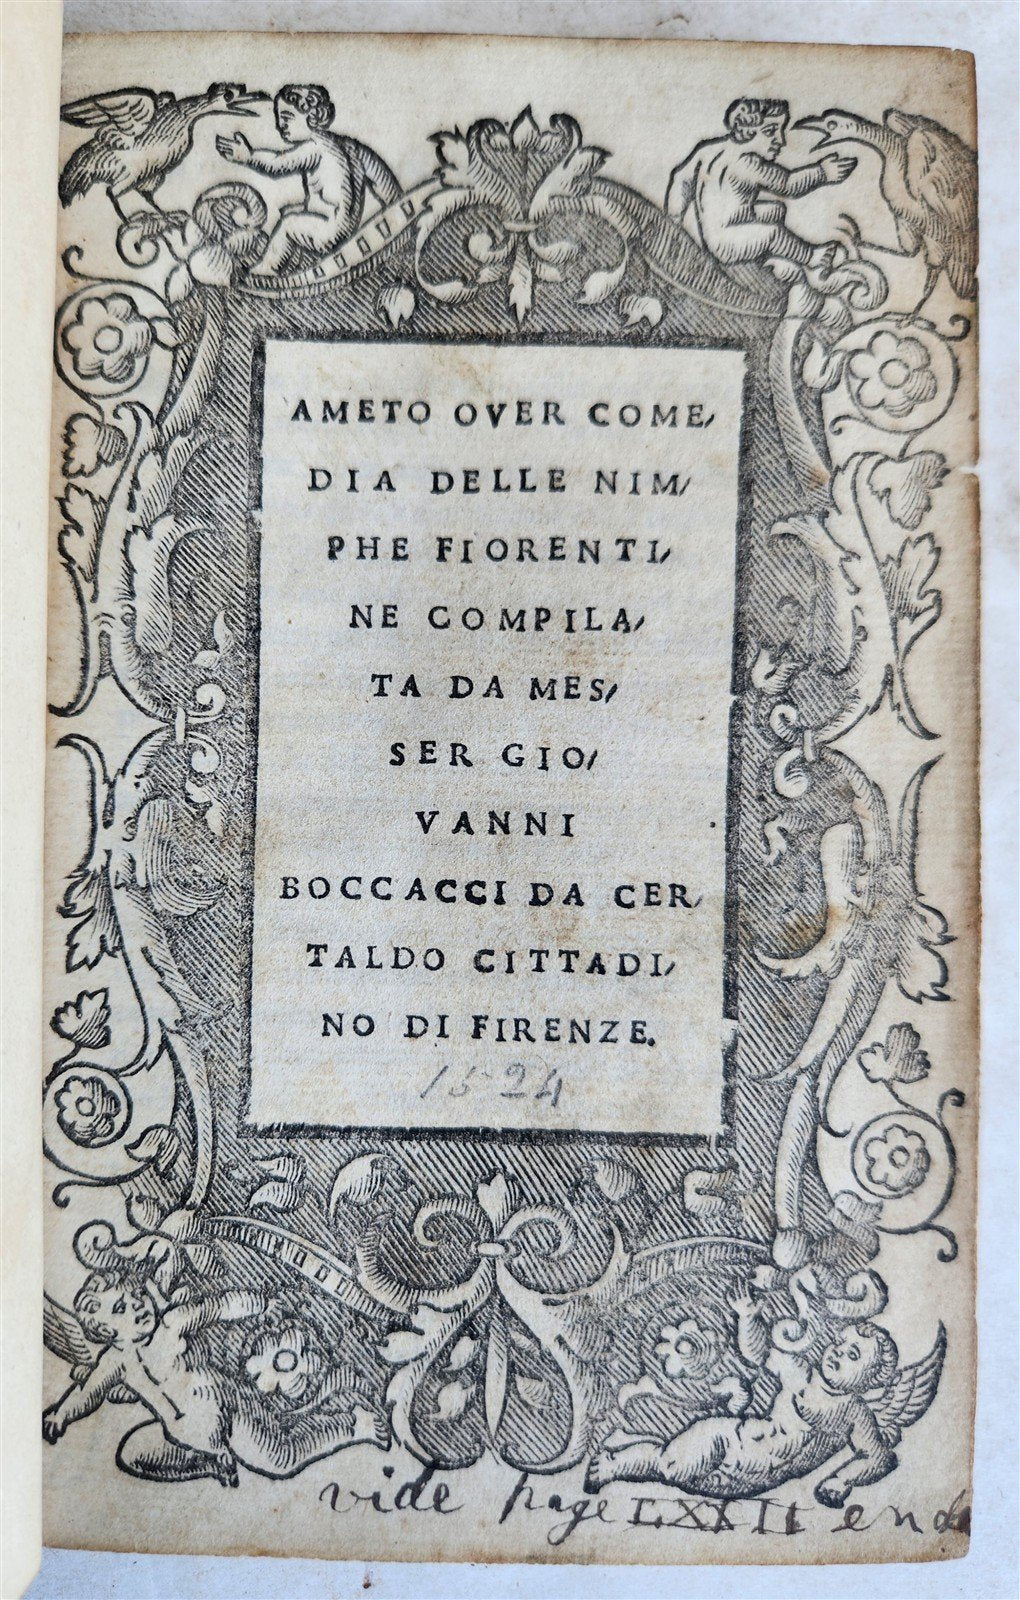 AMETO OVER COME/
DIA DELLE NIM/
PHE FIORENTI/
NE COMPILA/
TA DA MES/
SER GIO/
VANNI
BOCCACCI DA CER/
TALDO CITTADI/
NO DI FIRENZE.
1524
vide page LXXII end